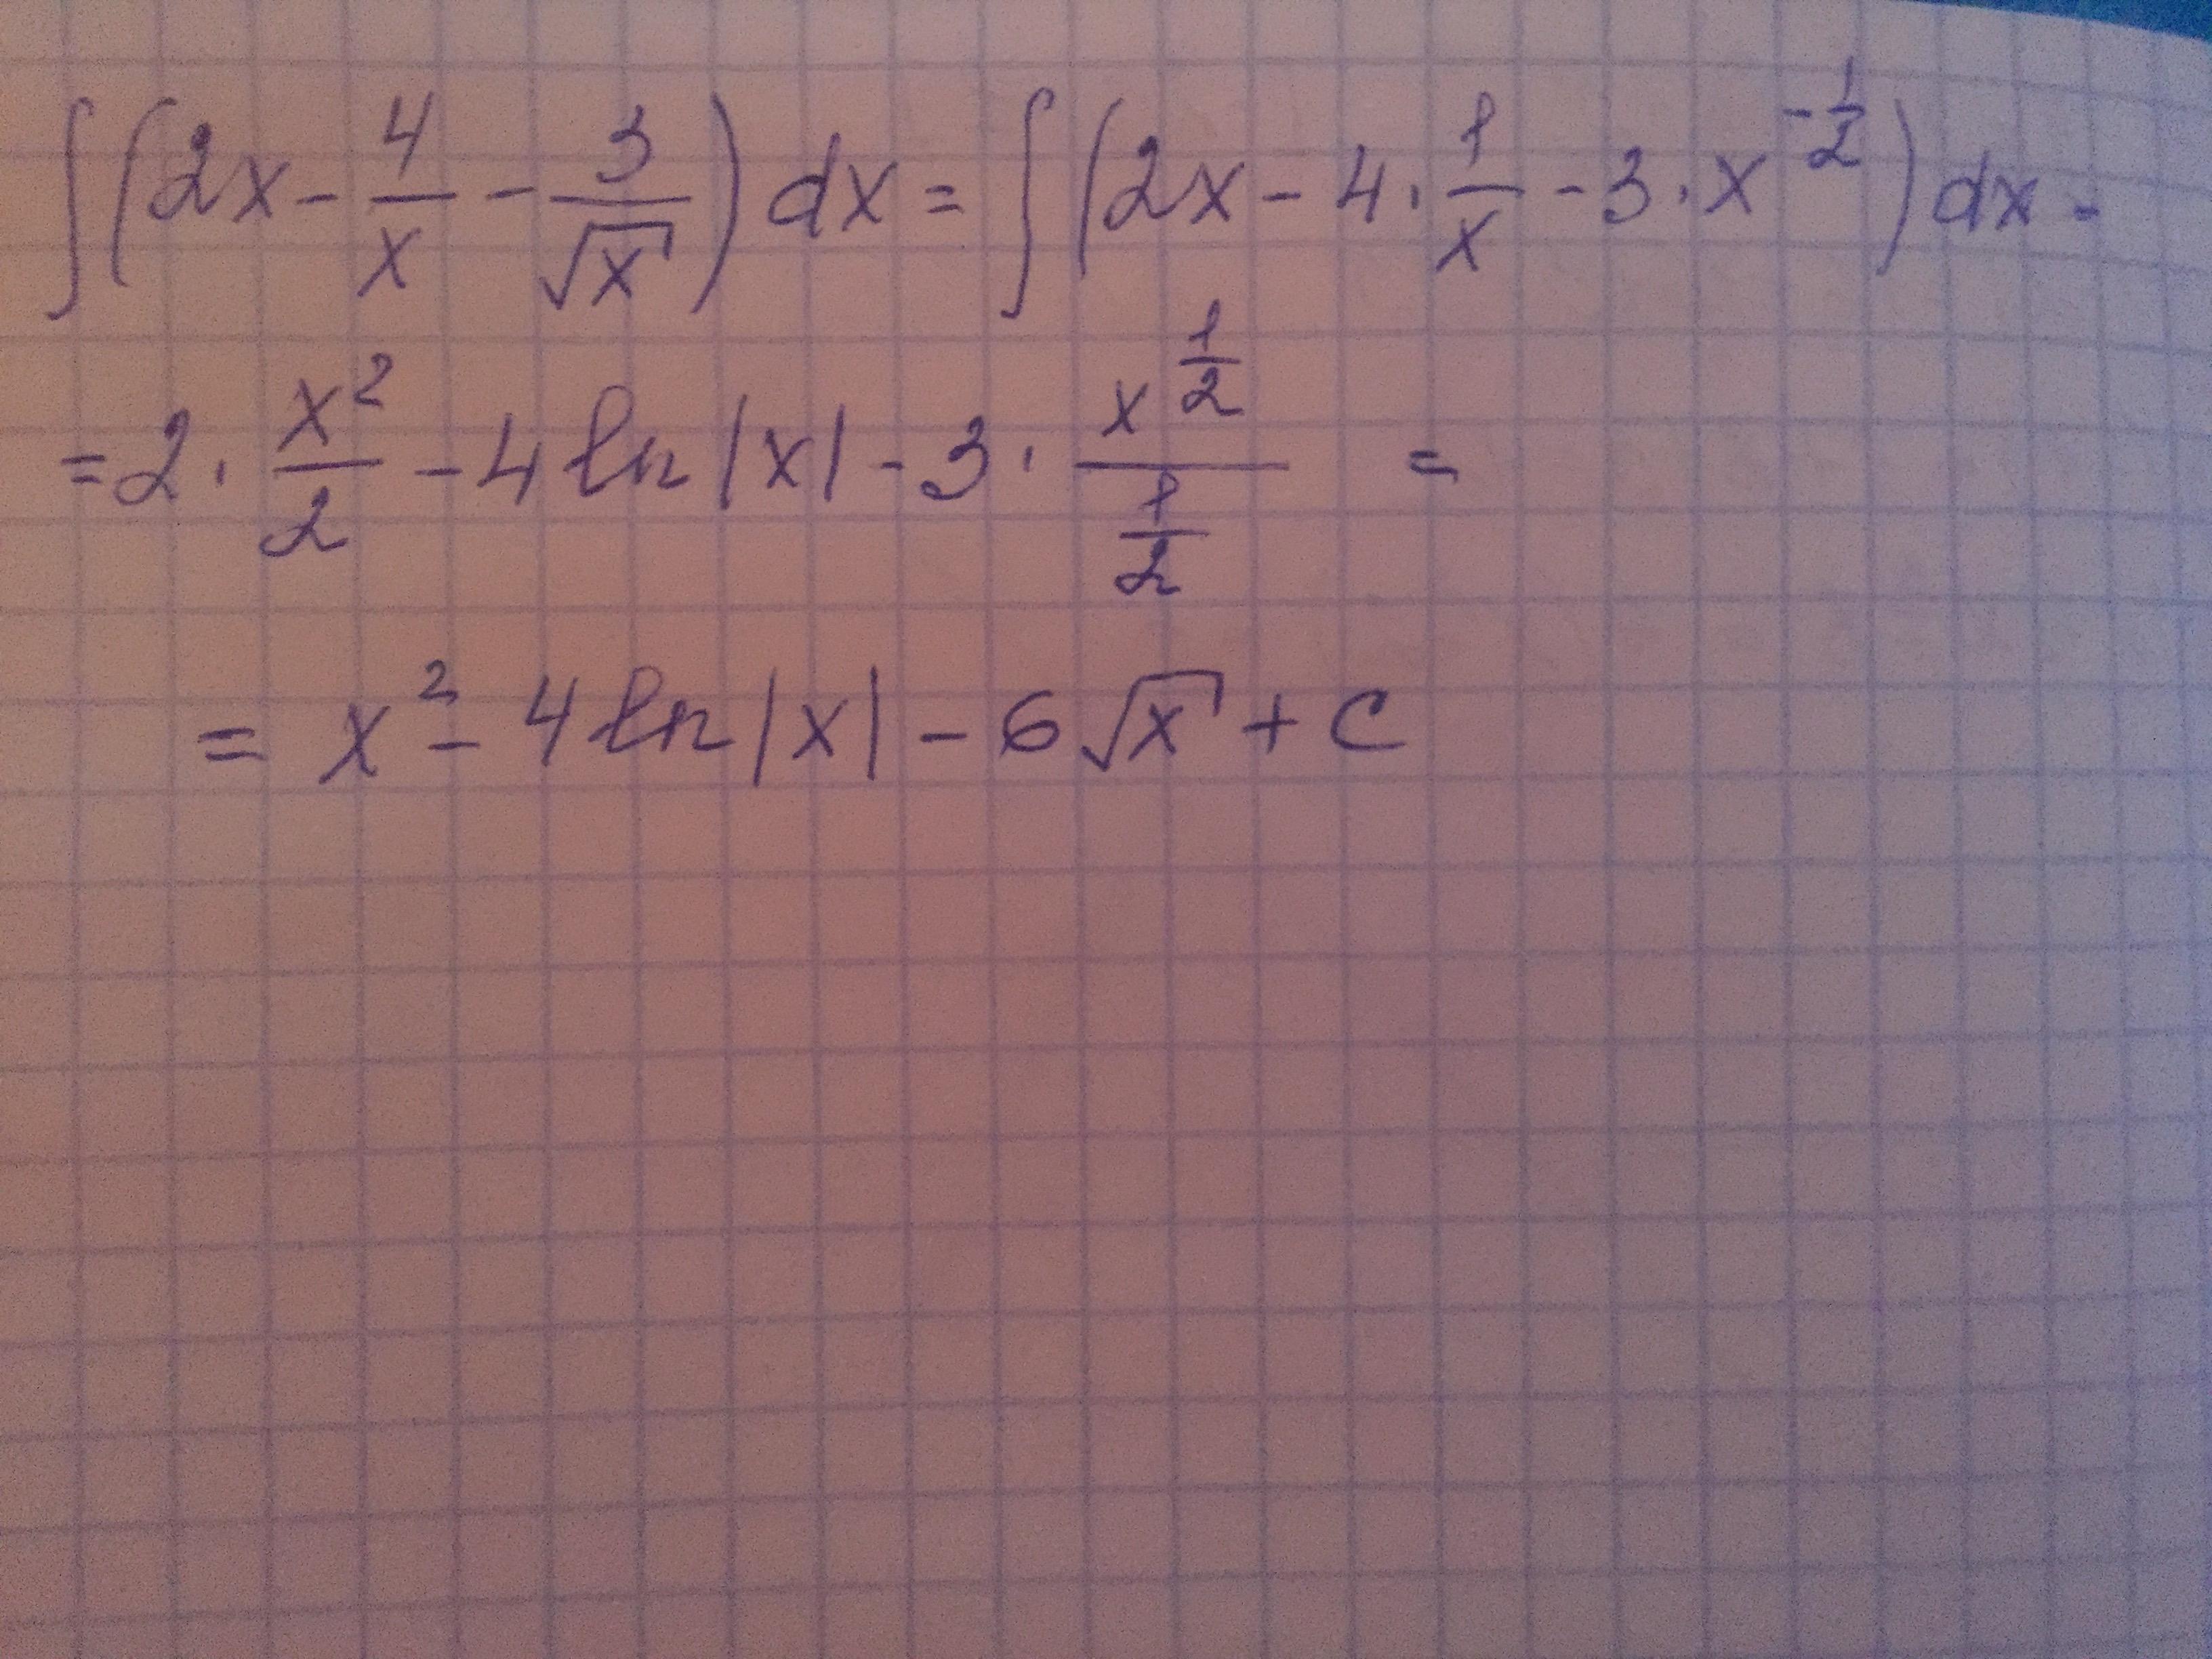 ∫(2x - 4/x - 3/√x) dx = ∫(2x - 4 · 1/x - 3 · x^(-1/2)) dx =
= 2 · x²/2 - 4 ln|x| - 3 · x^(1/2)/(1/2) =
= x² - 4 ln|x| - 6√x + C